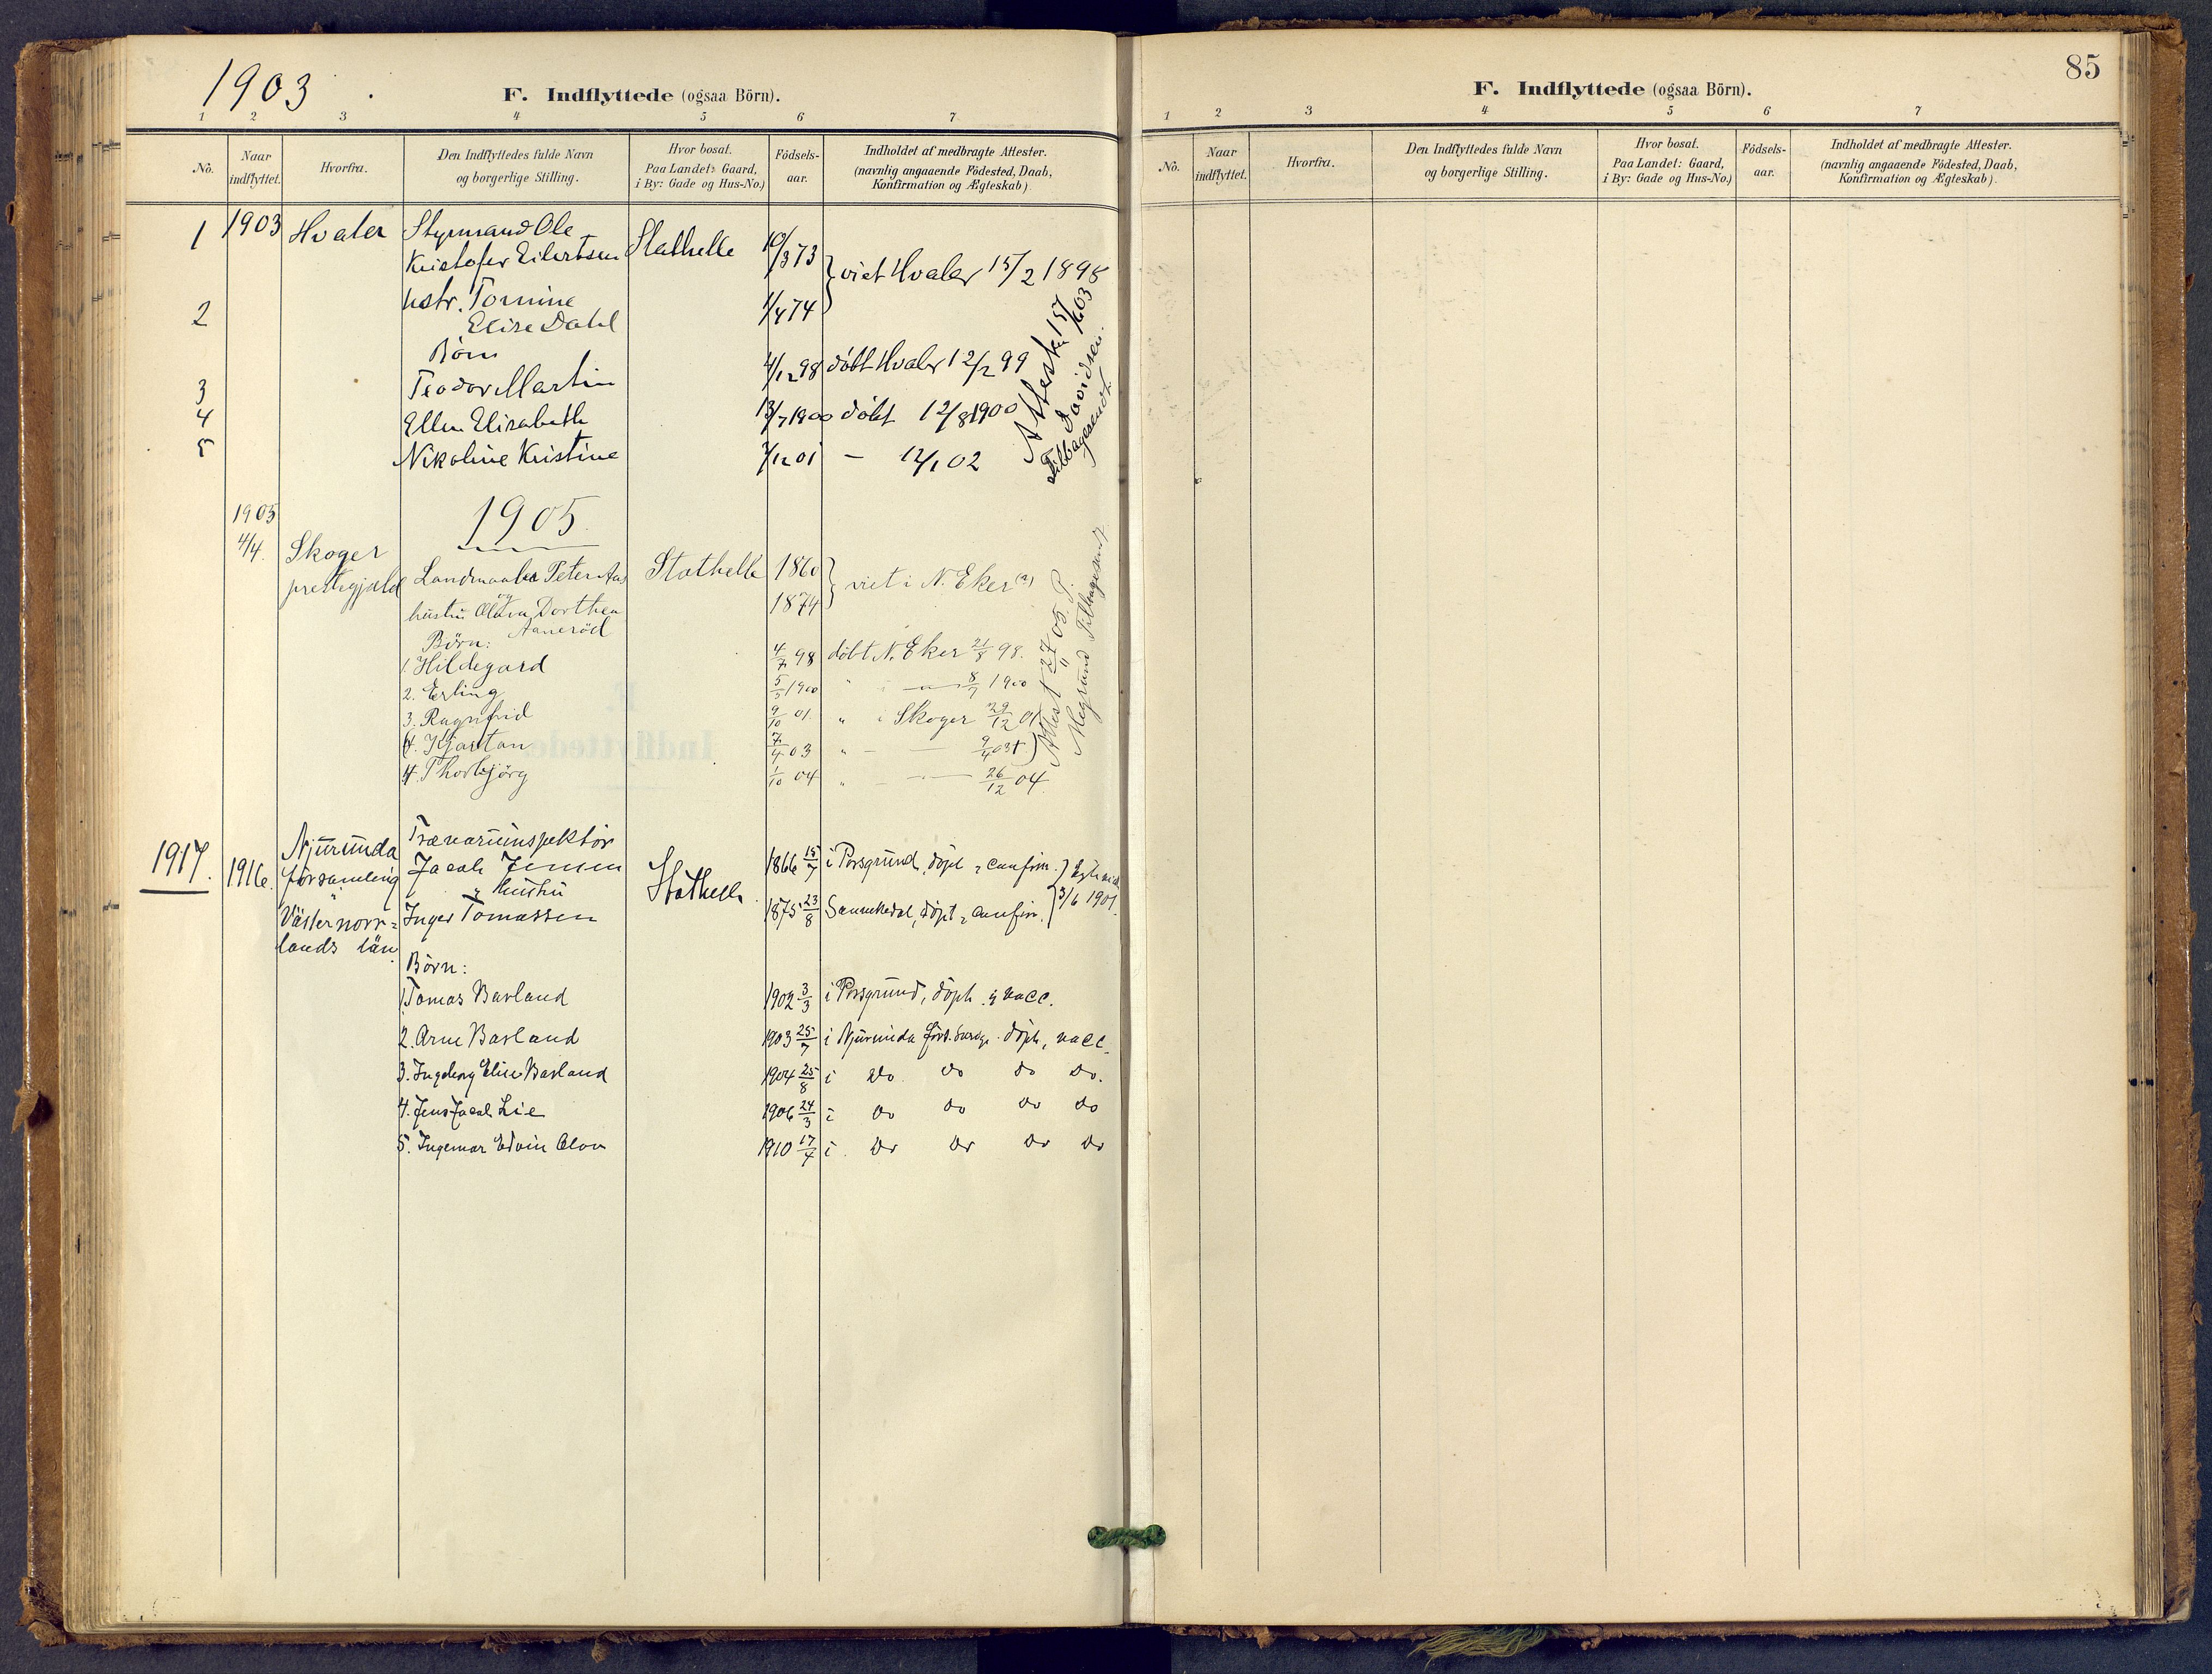 1903
F. Indflyttede (ogsaa Börn).
1 2 3 4 5 6 7
No.
Naar indflyttet.
Hvorfra.
Den Indflyttedes fulde Navn
og borgerlige Stilling.
Hvor bosat.
Paa Landet: Gaard,
i By: Gade og Hus-No.)
Födsels-
aar.
Indholdet af medbragte Attester.
(navnlig angaaende Födested, Daab,
Konfirmation og Ægteskab)
1 1903 Hvaler Styrmand Ole
Kristofer Eilertsen Stathelle 10/3 73
} viet Hvaler 15/2 1898
2 hstr. Tomine 1/4 74
Elise Dahl
Börn
3 Teodor Martin 4/12 98 döbt Hvaler 12/2 99
4 Ellen Elisabeth 13/7 1900 döbt 12/8 1900
5 Nikoline Kristine 7/12 01 — 12/1 02
Attest 15/6 03
Davidsen.
Tilbagesendt
1905
1905
4/4. Skoger
prestegjeld Landmaaler Peter Aas Stathelle 1860
} viet i N. Eker (?)
og
hustru Olava Dorthea 1874
Aaneröd
Börn:
1. Hildegard 4/7 98 döbt N. Eker 21/8 98.
2. Erling 5/5 1900 " i — 8/7 1900
3. Ragnfrid 9/10 01. " i Skoger 29/12 01
(4. Kjartan 7/4 03 " — — 9/4 03 †)
4. Thorbjörg 1/10 04 " — — 26/12 04.
Attest 27/4 05. P.
Tilbagesendt
1917.
1916. Njurunda
församling
Västernorr-
lands län.
Trævareinspektör
Jacob Jensen
& hustru
Inger Tomassen
Stathelle
1866 15/7 i Porsgrund, döpt, confirm.
1875 23/8 Sannikedal, döpt, confirm.
3/6 1901.
Börn:
1. Tomas Barland 1902 3/3 i Porsgrund, döpt & vacc.
2. Arne Barland 1903 25/7 i Njurunda förs. Sverge. döpt, vacc.
3. Ingeborg Elise Barland 1904 25/8 i do do do do.
4. Jens Jacob Lie 1906 24/3 i do do do do
5. Ingemar Edvin Olov 1910 17/4 i do do do do
85
F. Indflyttede (ogsaa Börn).
1 2 3 4 5 6 7
No.
Naar
indflyttet.
Hvorfra.
Den Indflyttedes fulde Navn
og borgerlige Stilling.
Hvor bosat.
Paa Landet: Gaard,
i By: Gade og Hus-No.)
Födsels-
aar.
Indholdet af medbragte Attester.
(navnlig angaaende Födested, Daab,
Konfirmation og Ægteskab).